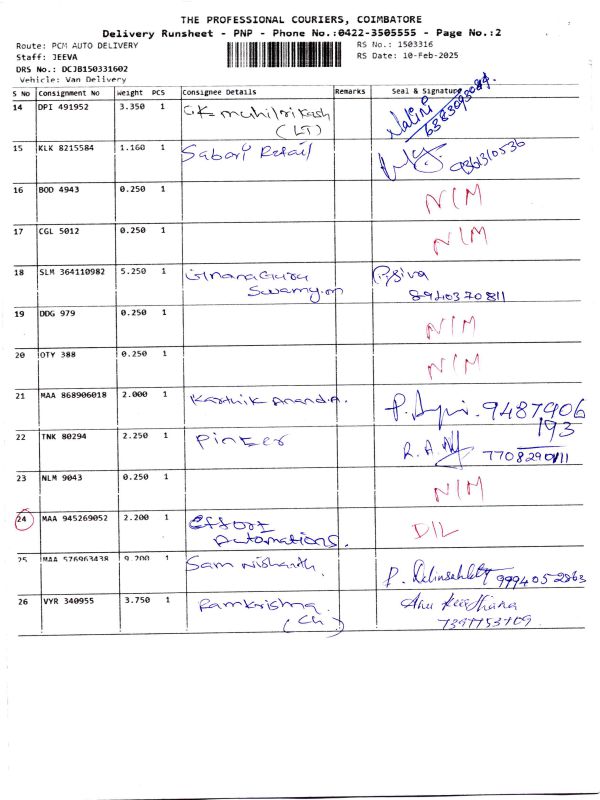 THE PROFESSIONAL COURIERS, COIMBATORE
Delivery Runsheet - PNP - Phone No.:0422-3505555 - Page No.:2
Route: PCM AUTO DELIVERY RS No.: 1503316
Staff: JEEVA RS Date: 10-Feb-2025
DRS No.: DCJB150331602
Vehicle: Van Delivery
S No Consignment No Weight PCS Consignee Details Remarks Seal & Signature
14 DPI 491952 3.350 1 Nalini
(LT) 6383093084
15 KLK 8215584 1.160 1 Sabari Retail 9361310536
16 BOD 4943 0.250 1 N/M
17 CGL 5012 0.250 1 N/M
18 SLM 364110982 5.250 1 Gnanaguru P.Siva
Swamy.m 8940370811
19 DDG 979 0.250 1 N/M
20 OTY 388 0.250 1 N/M
21 MAA 868906018 2.000 1 Karthik Anand.A. 9487906
193
22 TNK 80294 2.250 1 Pinker R.A. 7708290111
23 NLM 9043 0.250 1 N/M
24 MAA 945269052 2.200 1 Effort D/L
Automations.
25 MAA 576963438 9.200 1 Sam Nishanth. P. 9994052863
26 VYR 340955 3.750 1 Ramkrishna Anu Keerthana
(Ch) 7397753709